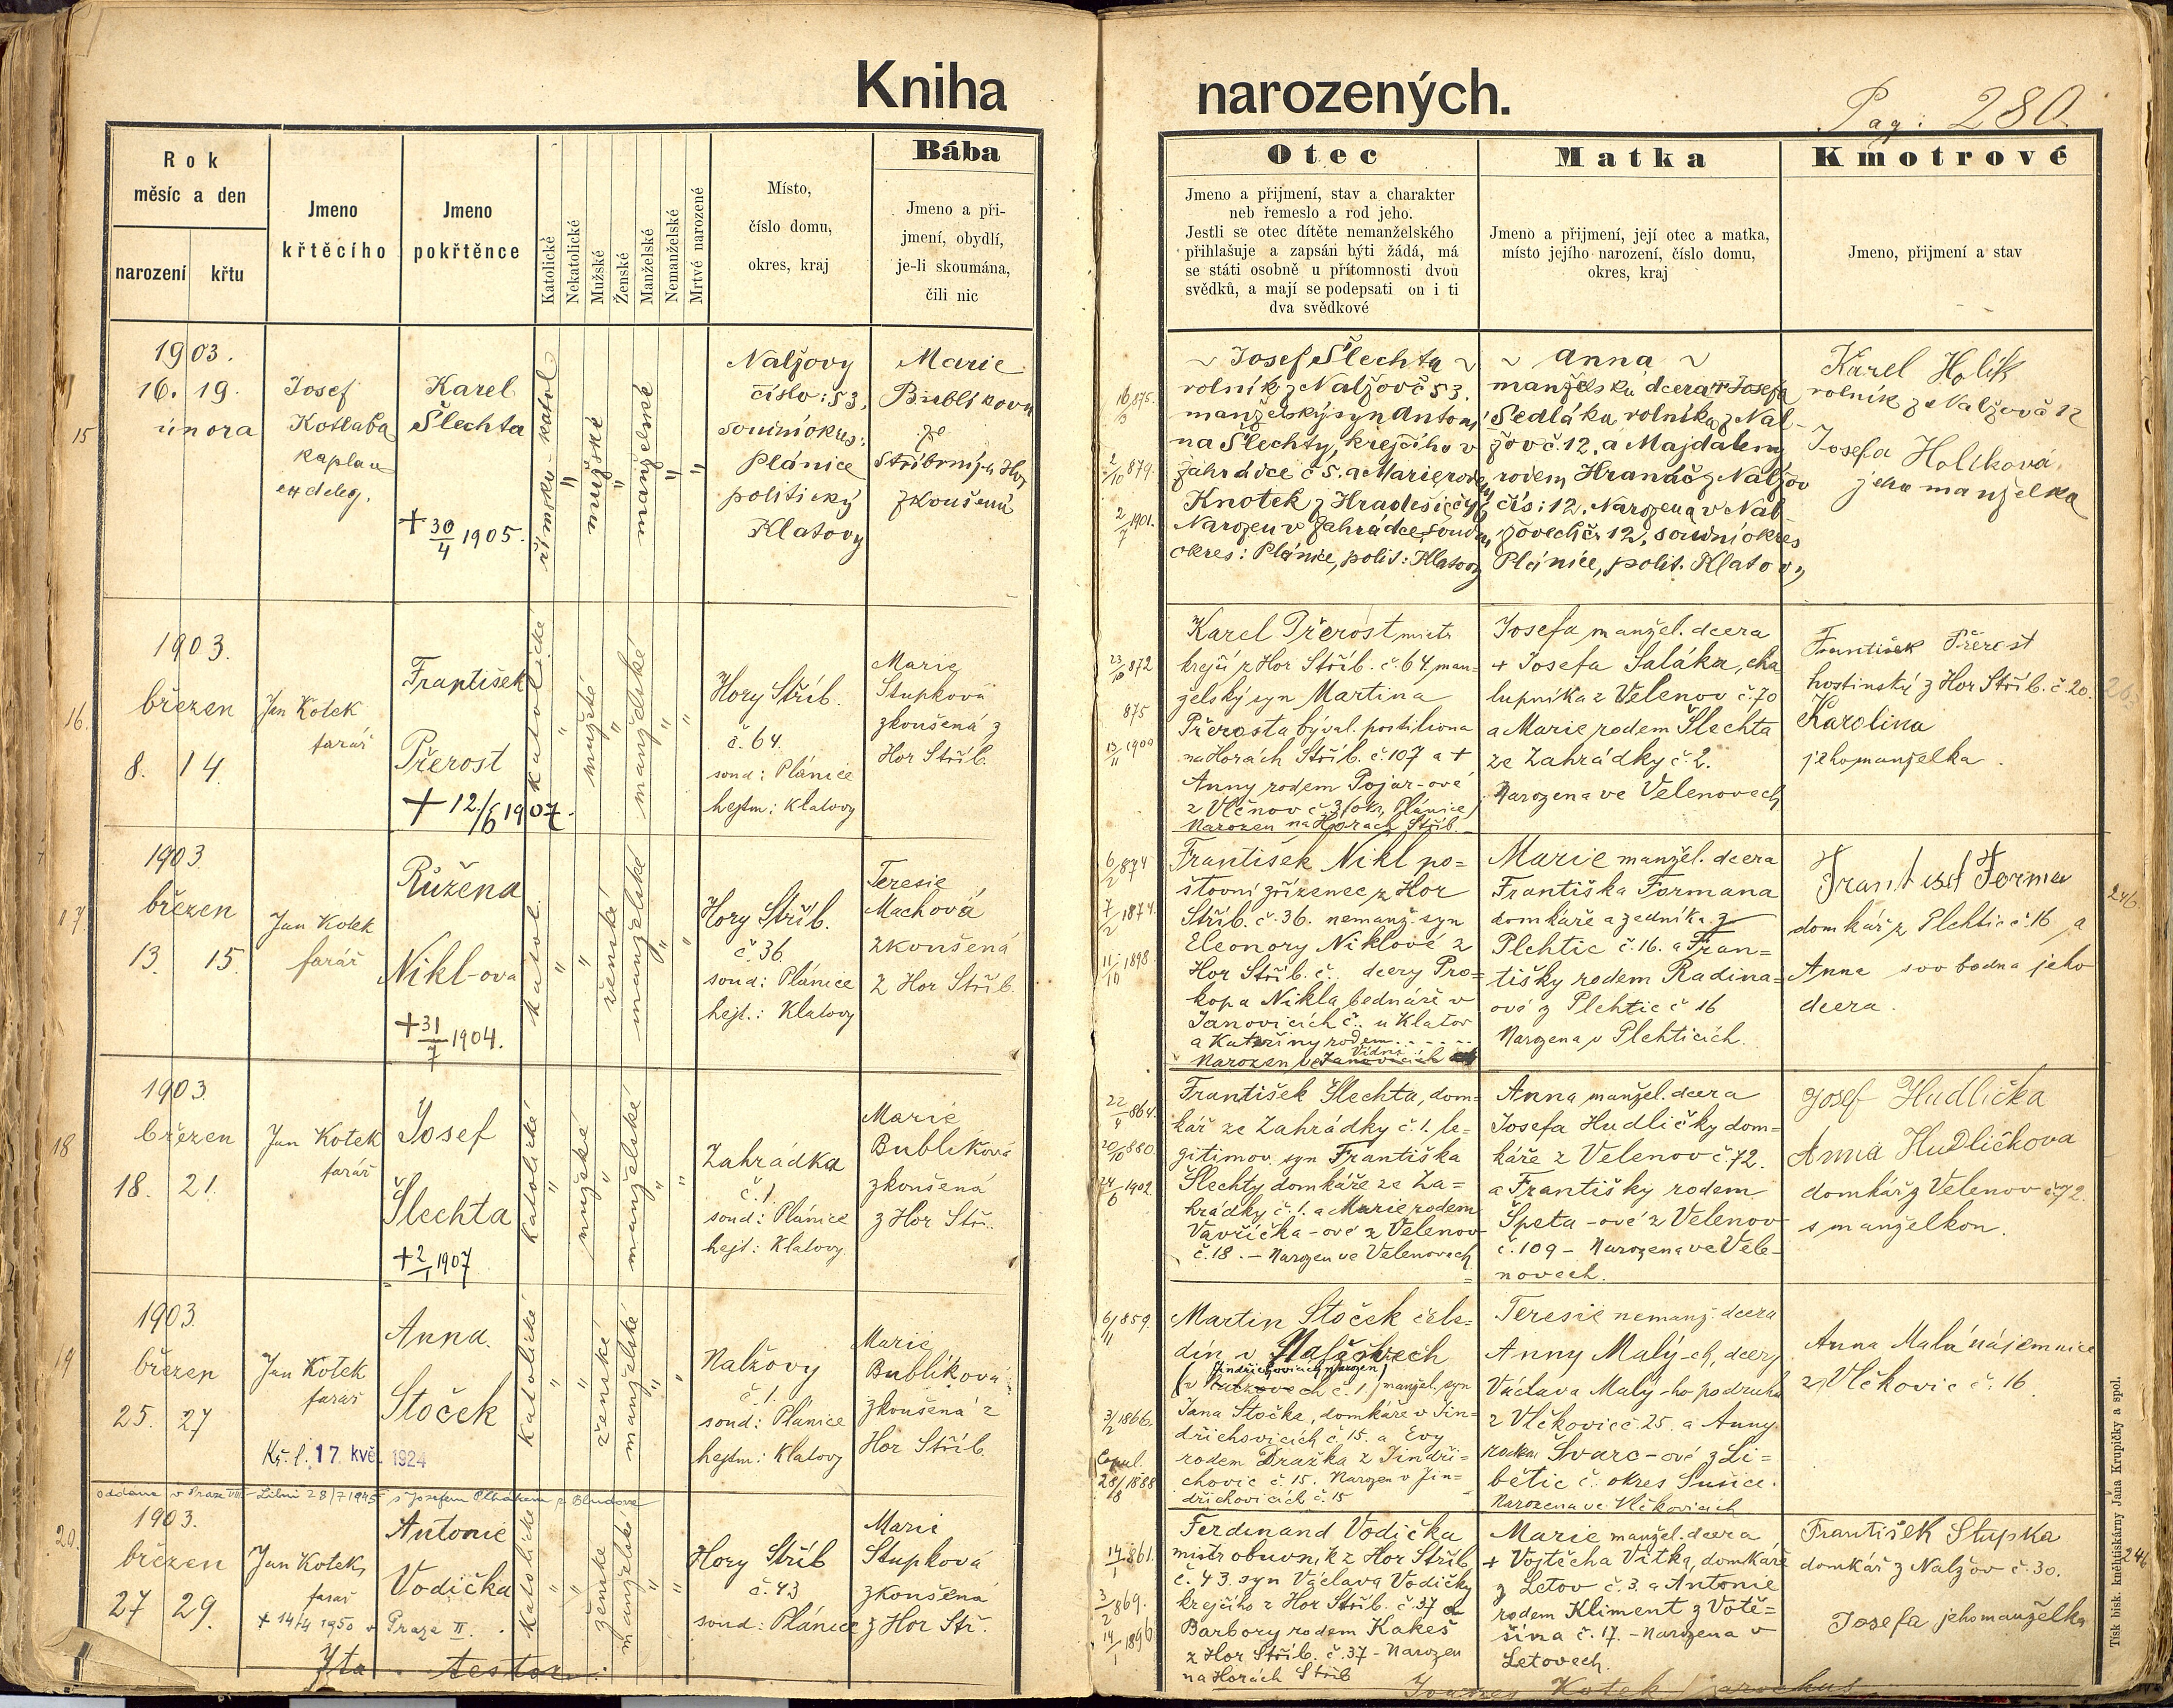 Kniha narozených.
Pag: 280.
Rok
měsíc a den
narození křtu
Jmeno
křtěcího
Jmeno
pokřtěnce
Katolické
Nekatolické
Mužské
Ženské
Manželské
Nemanželské
Mrtvé narozené
Místo,
číslo domu,
okres, kraj
Bába
Jmeno a při-
jmení, obydlí,
je-li skoumána,
čili nic
Otec
Jmeno a přijmení, stav a charakter
neb řemeslo a rod jeho.
Jestli se otec dítěte nemanželského
přihlašuje a zapsán býti žádá, má
se státi osobně u přítomnosti dvou
svědků, a mají se podepsati on i ti
dva svědkové
Matka
Jmeno a přijmení, její otec a matka,
místo jejího narození, číslo domu,
okres, kraj
Kmotrové
Jmeno, přijmení a stav
15
1903.
16. 19.
února
Josef
Kotlaba
kaplan
ex deleg.
Karel
Šlechta
+ 30/4 1905.
římsko-katol
"
mužské
"
manželské
"
"
Nalžovy
číslo: 53,
soudní okres:
Plánice
politický
Klatovy
Marie
Bublíkova
ze
Stříbrných Hor
zkoušená
16/3 875.
2/10 879.
2/7 1901.
~ Josef Šlechta ~
rolník z Nalžov č 53.
manželský syn Antoní
na Šlechty, krejčího v
Zahrádce č 5. a Marie rodem
Knotek z Hradešic
Narozen v Zahrádce, soudní
okres: Plánice, polit: Klatovy
~ Anna ~
manželská dcera + Josefa
Sedláka, rolníka z Nal-
žov č. 12. a Majdaleny
rodem Hranáč z Nalžov
čís: 12. Narozena v Nal
žovech č. 12, soudní okres
Plánice, polit. Klatovy
Karel Holík
rolník z Nalžov č 12
Josefa Holíková,
jeho manželka
16.
1903.
březen
8. 14.
Jan Kotek
farář
František
Přerost
+ 12./6 1907.
katolické
"
mužské
"
manželské
"
"
Hory Stříb.
č. 64.
soud: Plánice
hejtm: Klatovy
Marie
Stupková
zkoušená z
Hor Stříb.
23/10 872
875
13/11 1900
Karel Přerost mistr
krejčí z Hor Stříb. č. 64, man-
želský syn Martina
Přerosta býval. postiliona
na Horách Stříb. č. 107 a +
Anny rodem Pojar-ové
z Vlčnov č 3, okr. Plánice
Narozen na Horách Stříb.
Josefa manžel. dcera
+ Josefa Saláka, cha
lupníka z Velenov č. 70
a Marie rodem Šlechta
ze Zahrádky č. 2.
Narozena ve Velenovech
František Přerost
hostinský z Hor Stříb. č. 20.
Karolina
jeho manželka.
17.
1903.
březen
13. 15.
Jan Kotek
farář
Růžena
Nikl-ova
+ 31/7 1904.
katol.
"
"
ženské
manželské
"
"
Hory Stříb.
č. 36.
soud: Plánice
hejt.: Klatovy
Teresie
Machová
zkoušená
z Hor Stříb.
6/2 874
7/2 1874.
11/10 1898.
František Nikl po=
štovní zřízenec z Hor
Stříb. č. 36. nemanž. syn
Eleonory Niklové z
Hor Stříb. č. dcery Pro=
kopa Nikla bednáře v
Janovicích č. u Klatov
a Kateřiny rodem - - - - -
Vídni
Narozen ve Janovicích
Marie manžel. dcera
Františka Formana
domkáře a zedníka z
Plehtic č. 16. a Fran=
tišky rodem Radina-
ové z Plehtic č 16
Narozena v Plehticích.
František Forman
domkář z Plehtic č. 16, a
Anna svobodná jeho
dcera.
246.
18
1903.
březen
18. 21.
Jan Kotek
farář
Josef
Šlechta
+ 2/1 1907
katolické
"
mužské
"
manželské
"
"
Zahrádka
č. 1.
soud: Plánice
hejt: Klatovy.
Marie
Bublíková
zkoušená
z Hor Stř.
22/4 864.
20/10 880.
24/6 1902.
František Šlechta, dom-
kář ze Zahrádky č. 1. le-
gitimov. syn Františka
Šlechty domkáře ze Za=
hrádky č. 1. a Marie rodem
Vavřička-ové z Velenov
č. 18. – Narozen ve Velenovech
Anna manžel. dcera
Josefa Hudličky dom=
káře z Velenov č. 72.
a Františky rodem
Špeta-ové z Velenov
č. 109 – Narozena ve Vele-
novech.
Josef Hudlička
Anna Hudličkova
domkář z Velenov č. 72.
s manželkou.
19
1903.
březen
25. 27
Jan Kotek
farář
Kř. l. 17. kvě. 1924
Anna
Stoček
katolické
"
"
ženské
manželské
"
"
Nalžovy
č. 1.
soud: Plánice
hejtm: Klatovy
Marie
Bublíková
zkoušená z
Hor Stříb.
oddána v Praze VIII - Libni 28/7 1945 s Josefem Plhákem z Bludova
6/11 859.
3/2 1866.
Copul.
28/18 1888
Martin Stoček čele-
dín v Nalžovech
Jindřichovicích narozen
(v Nalžovech č. 1.) manžel. syn
Jana Stočka, domkáře v Jin-
dřichovicích č. 15. a Evy
rodem Dražka z Jindři-
chovic č. 15. Narozen v Jin=
dřichovicích č. 15
Teresie nemanž. dcera
Anny Malý-ch, dcery
Václava Malý-ho podruha
z Vlčkovic č. 25. a Anny
rodem Švarc-ové z Li=
bětic č. okres Sušice.
Narozena ve Vlčkovicích
Anna Malá nájemnice
z Vlčkovic č. 16.
20.
1903.
březen
27 29.
Jan Kotek,
farář
+ 14/4 1950 v Praze II.
Antonie
Vodička
katolické
"
"
ženské
manželské
"
"
Hory Stříb
č. 43
soud: Plánice
Marie
Stupková
zkoušená
z Hor Stř.
14/1 861.
3/2 869.
14/1 1896
Ferdinand Vodička
mistr obuvník z Hor Stříb
č. 43. syn Václava Vodičky
krejčího z Hor Stříb. č. 37 a
Barbory rodem Kakeš
z Hor Stříb. č. 37 – Narozen
na Horách Stříb
Marie manžel. dcera
+ Vojtěcha Vítka, domkáře
z Letov č. 3. a Antonie
rodem Kliment z Votě=
šína č. 17. – Narozena v
Letovech.
František Stupka
domkář z Nalžov č. 30.
Josefa jeho manželka
246
Ita testor:
Joannes Kotek parochus.
Tisk bisk. knihtiskárny Jana Krupičky a spol.